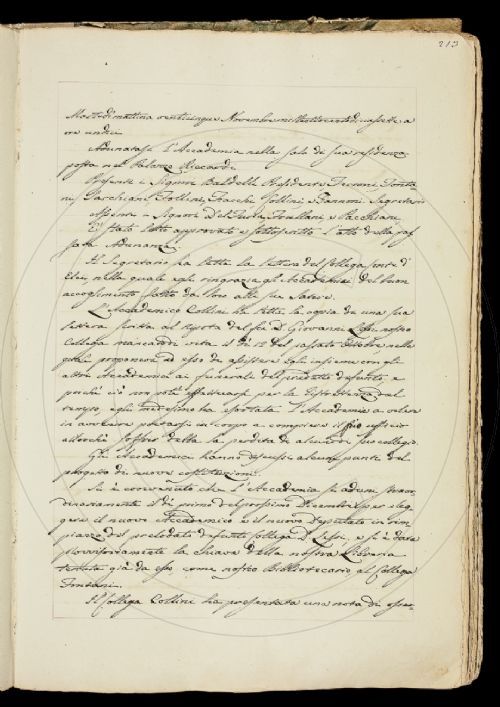 213
Martedì mattina venticinque Novembre milleottocentodiciassette a
ore undici
Adunatasi l'Accademia nella sala di sua residenza
posta nel Palazzo Riccardi
Presenti i Signori Baldelli Presidente Ferroni Fonta
ni Sarchiani, Follini, Fiacchi Collini, e Zannoni Segretario
Assenti i Signori Del Furia Fiorellani e Pacchiani
È stato letto approvato e sottoscritto l'atto della pas
sata Adunanza.
Il Segretario ha letta la lettera del Collega Conte d'
Elci nella quale egli ringrazia gli Accademici del buon
accoglimento fatto da loro alle sue Satire.
L'Accademico Collini ha letta la copia di una sua
lettera scritta al Nipote del fu D. Giovanni Lessi nostro
Collega mancato di vita il dì 12 del passato Ottobre, nella
quale proponeva ad esso di assistere egli insieme con gli
altri Accademici ai funerali del predetto defunto, e
poiché ciò non potè effettuarsi per la ristrettezza del
tempo, egli medesimo ha esortata l'Accademia a volere
in avvenire portarsi in corpo a compiere il pio ufficio
allorché soffrir debba la perdita di alcuno di suo collegio.
Gli Accademici hanno discussi alcuni punti del
progetto di nuove costituzioni.
Si è convenuto che l'Accademia si aduni straor
dinariamente il dì primo del prossimo Dicembre per eleg
gere il nuovo Accademico e il nuovo Deputato in rim
piazzo del prelodato defunto Collega D. Lessi, e si è data
provvisoriamente la chiave della nostra Libreria
tenuta già da esso come nostro Bibliotecario al Collega
Fontani.
Il Collega Collini ha presentata una nota di osser-